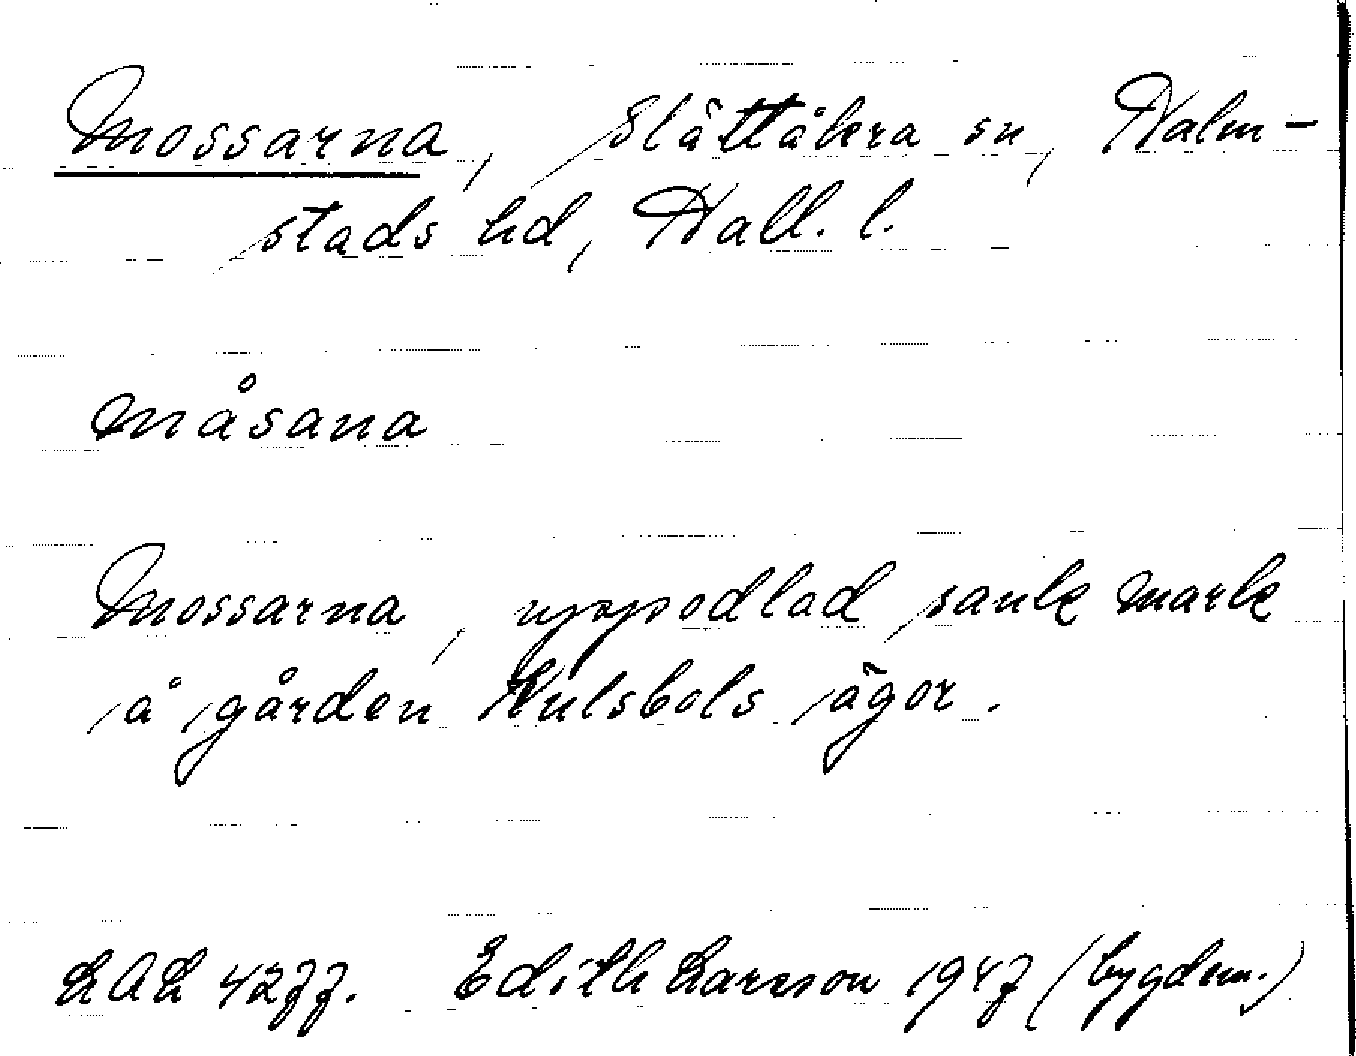 Mossarna, Slättåkra sn, Halm-
stads hd, Hall. l.
måsana
Mossarna, uppodlad sank mark
å gården Kulsbols ägor.
LAL 4277. Edith Larsson 1947 (bygdem.)